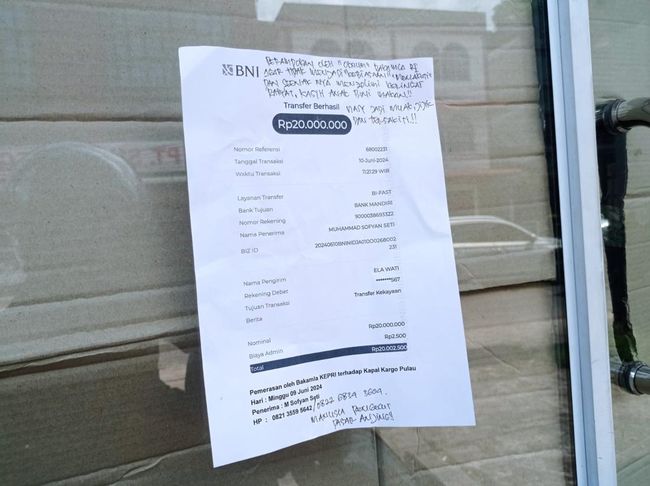 BNI
PERAMPOKAN OLEH "OKNUM"
AGAR TIDAK MENJADI KEBIASAAN!!
DAN SEENAK NYA MENZOLIMI KERINGAT
RAKYAT, KASIH ANAK BINI MAKAN!!
Transfer Berhasil
Rp20.000.000
DAN TERSAKITI!!
Nomor Referensi 68002231
Tanggal Transaksi 10-Juni-2024
Waktu Transaksi 11:21:29 WIB
Layanan Transfer BI-FAST
Bank Tujuan BANK MANDIRI
Nomor Rekening 9000038693322
Nama Penerima MUHAMMAD SOFYAN SETI
BIZ ID 20240610BNINIDJA010O0268002
231
Nama Pengirim ELA WATI
Rekening Debet *******567
Tujuan Transaksi Transfer Kekayaan
Berita
Nominal Rp20.000.000
Biaya Admin Rp2.500
Total Rp20.002.500
Pemerasan oleh Bakamla KEPRI terhadap Kapal Kargo Pulau
Hari : Minggu 09 Juni 2024
Penerima : M Sofyan Seti
HP : 0821 3559 5642 / 0822 6829 3609.
MANUSIA PENGECUT
DASAR ANJING!!